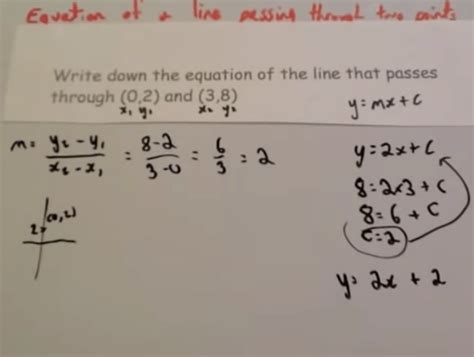 Equation of a line passing through two points
Write down the equation of the line that passes
through (0,2) and (3,8)
x₁ y₁ x₂ y₂
y=mx+c
m= y₂-y₁ / x₂-x₁ = 8-2 / 3-0 = 6/3 = 2
y=2x+c
8=2×3+c
8=6+c
c=2
2 (0,2)
y= 2x + 2